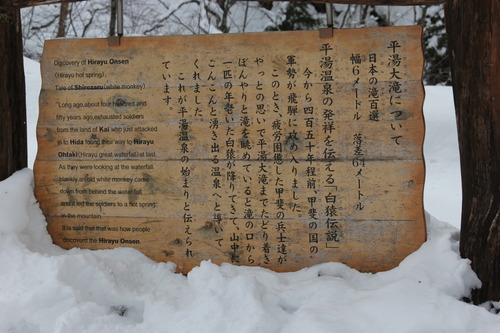 平湯大滝について
日本の滝百選
幅6メートル 落差64メートル
平湯温泉の発祥を伝える「白猿伝説」
今から四百五十年程前、甲斐の国の
軍勢が飛騨に攻め入りました。
このとき、疲労困憊した甲斐の兵士達が
やっとの思いで平湯大滝までたどり着き
ぼんやりと滝を眺めていると滝の口から
一匹の年老いた白猿が降りてきて、山中に
こんこんと湧き出る温泉へと導いて
くれました。
これが平湯温泉の始まりと伝えられ
ています。
Discovery of Hirayu Onsen
(Hirayu hot spring)
Tale of Shirozaru (white monkey)
Long ago, about four hundred and
fifty years ago, exhausted soldiers
from the land of Kai who just attacked
in to Hida found their way to Hirayu
Ohtaki (Hirayu great waterfall) at last.
As they were looking at the waterfall
blankly, an old white monkey came
down from behind the water fall
and led the soldiers to a hot spring
in the mountain.
It is said that that was how people
discovered the Hirayu Onsen.